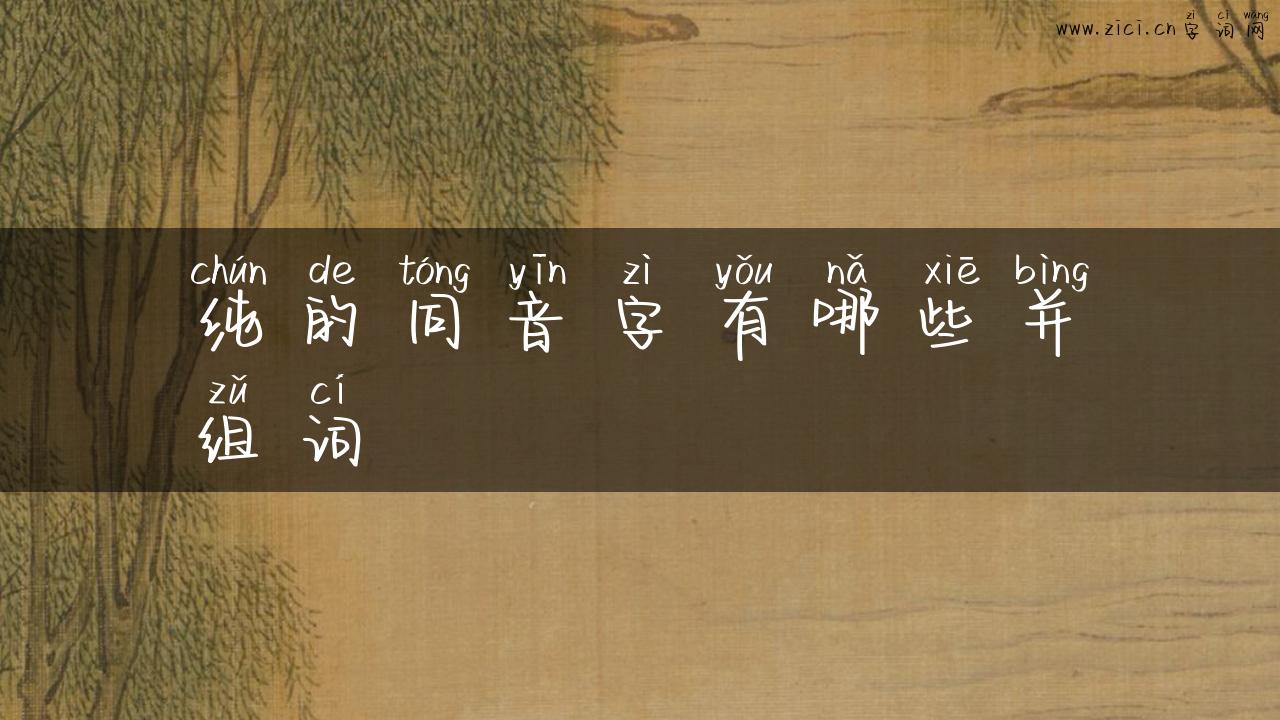 zì cí wǎng
www.zici.cn 字 词 网
chún de tóng yīn zì yǒu nǎ xiē bìng
纯 的 同 音 字 有 哪 些 并
zǔ cí
组 词